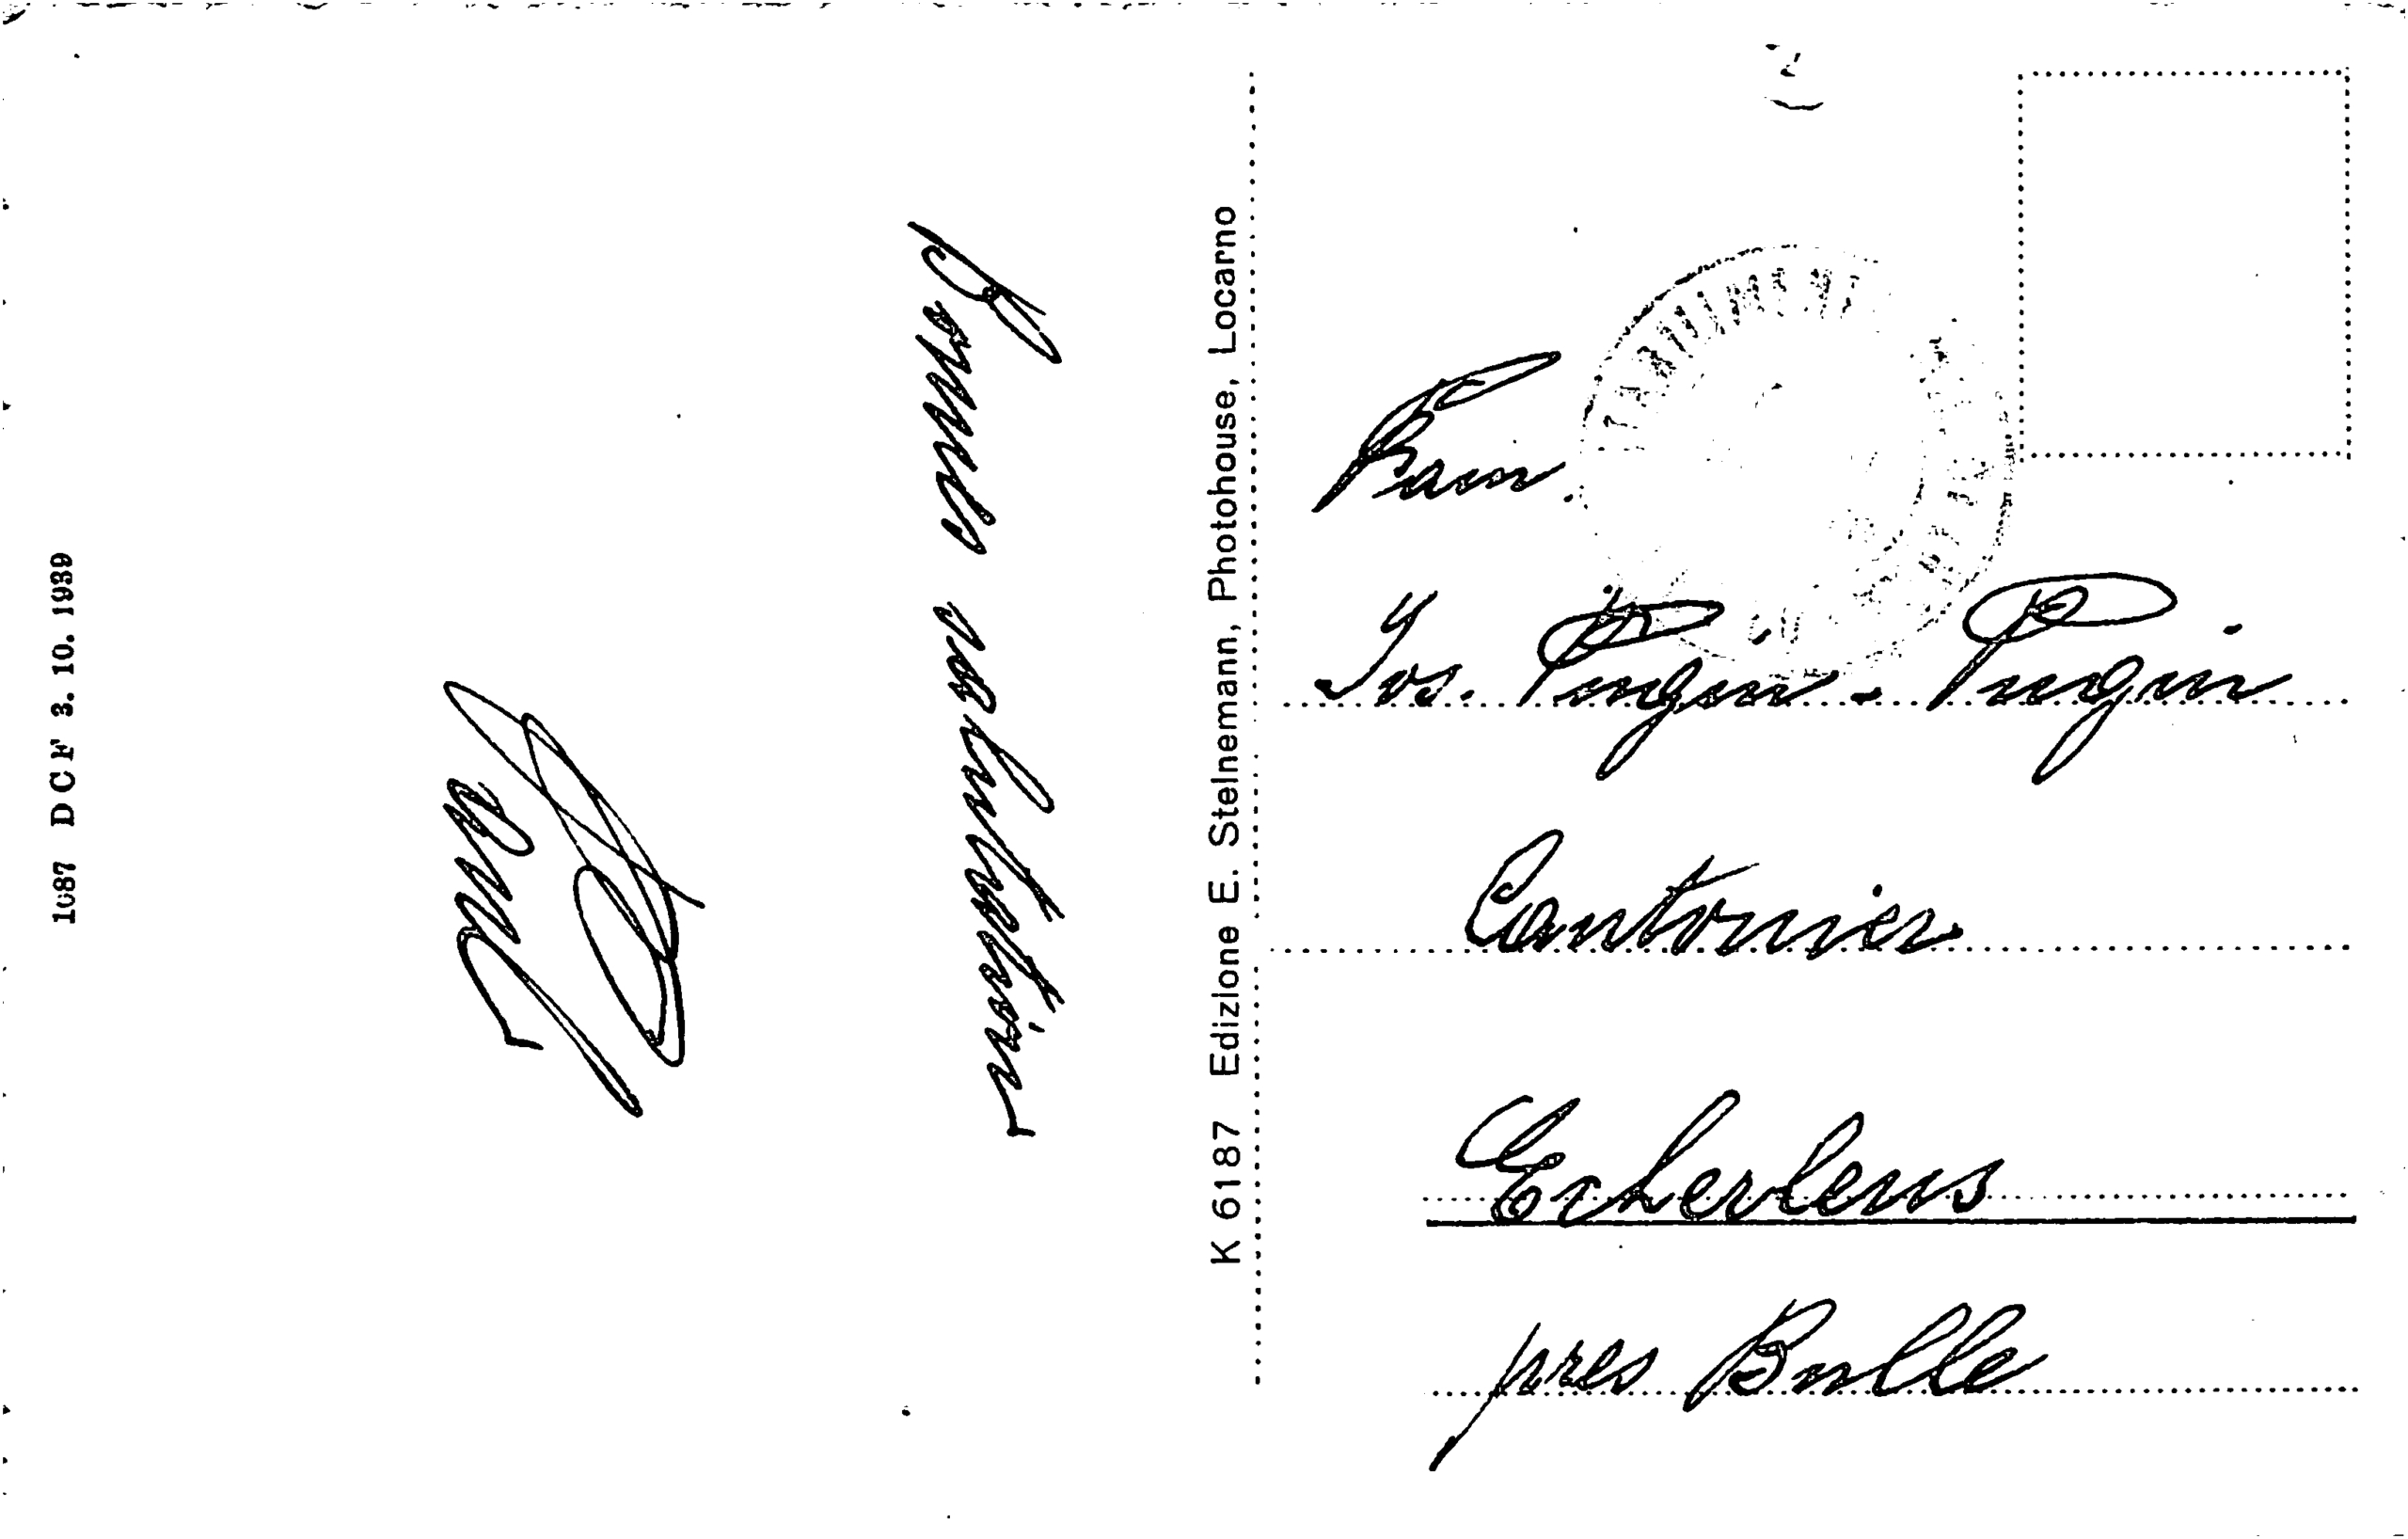 1087 DCF 3. 10. 1939
Bonnes salutations
K 6187 Edizione E. Steinemann, Photohouse, Locarno
Fam.
Jos. Pugin - Pugin
Cantonier
Echerlens
pres Bulle